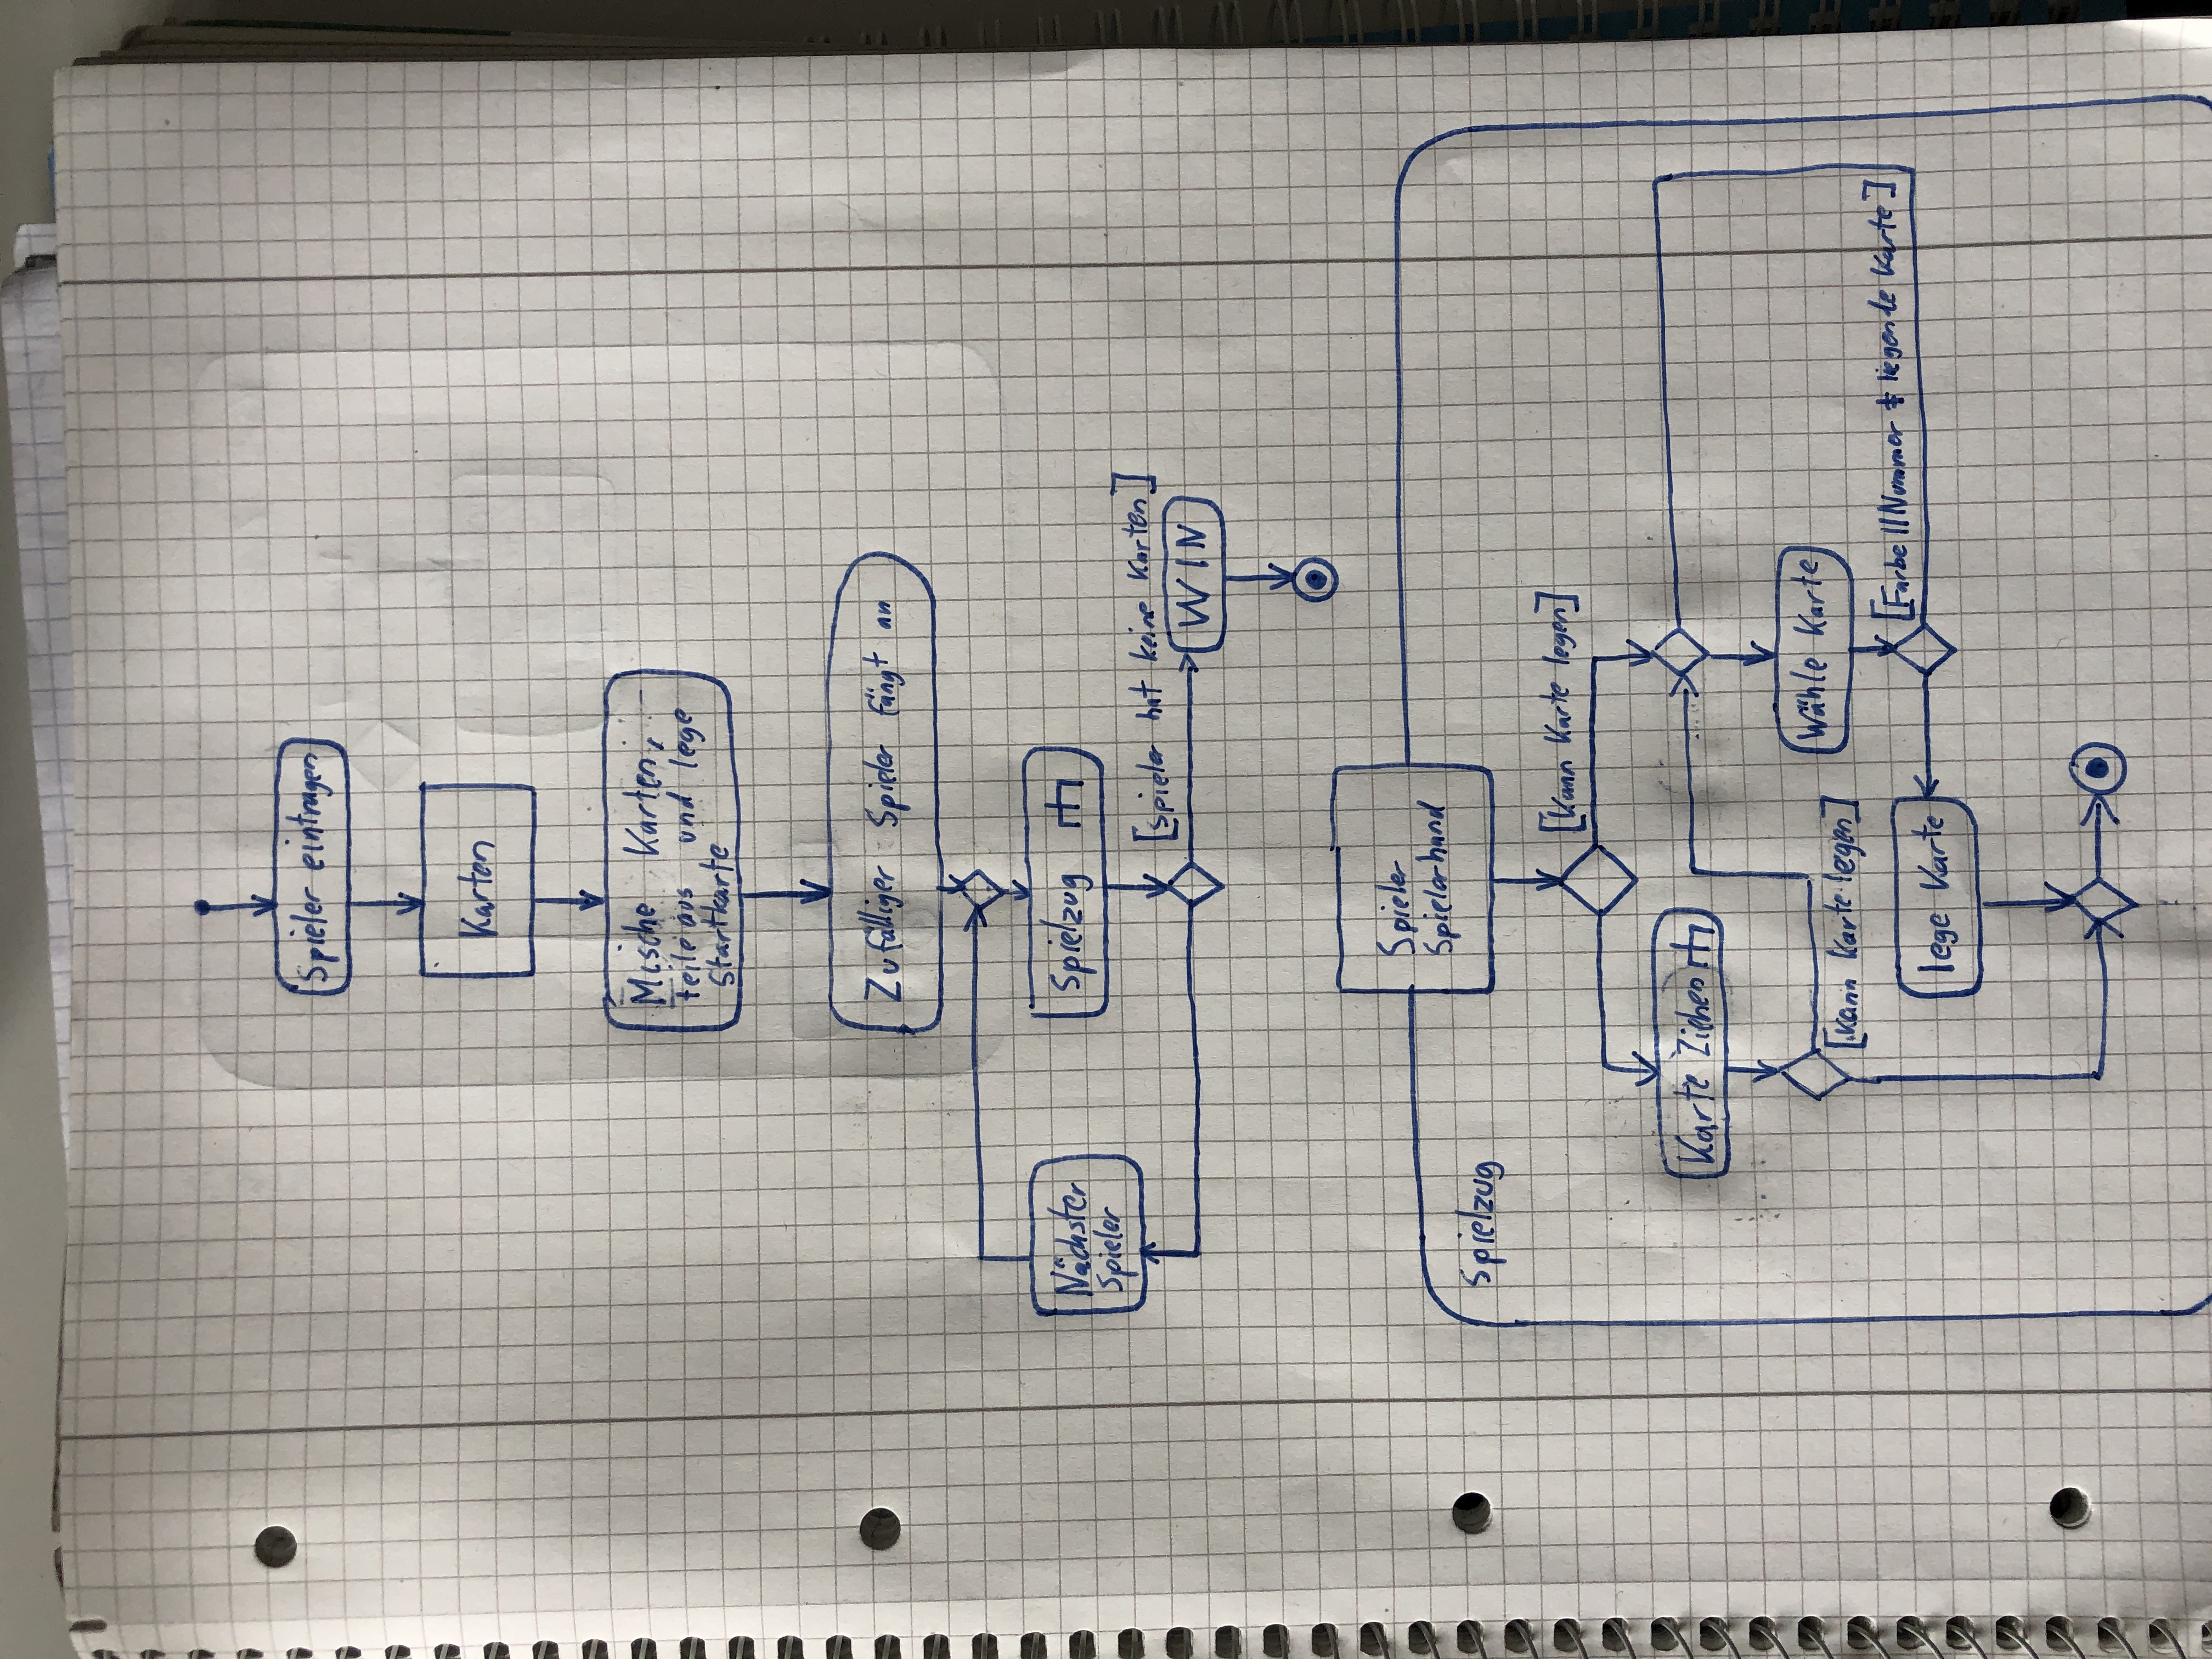 Spieler eintragen
Karten
Mische Karten,
teile aus und lege
Startkarte
Zufälliger Spieler fängt an
Nächster
Spieler
Spielzug
[Spieler hat keine Karten]
WIN
Spieler
Spielerhand
Spielzug
[Kann Karte legen]
Karte Ziehen
Wähle Karte
[Kann Karte legen]
[Farbe || Nummer ≠ liegende Karte]
lege Karte